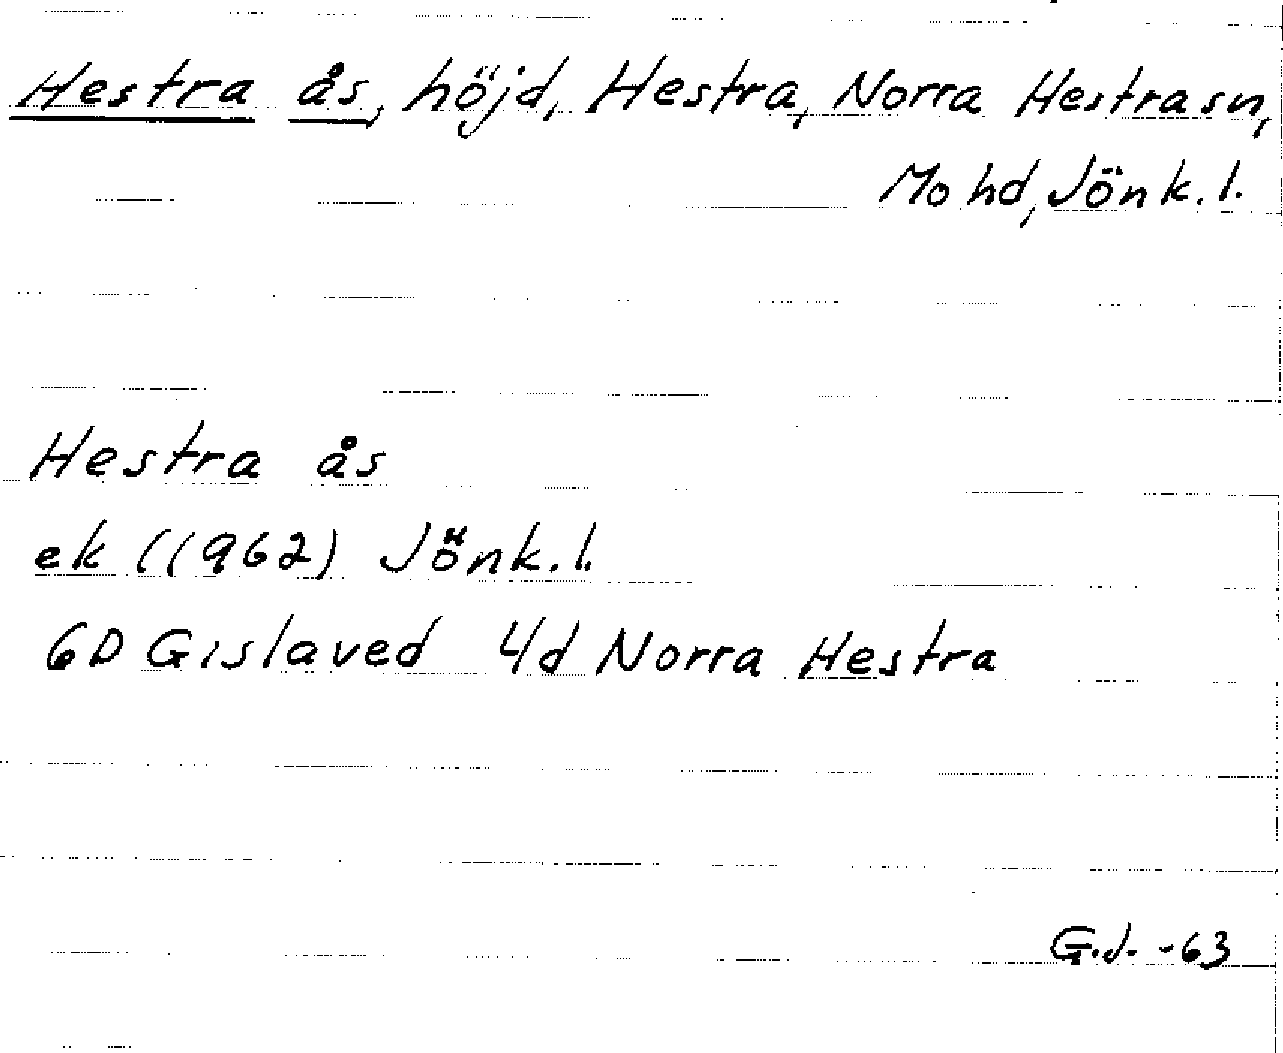 Hestra ås, höjd, Hestra, Norra Hestra sn,
Mo hd, Jönk. l.
Hestra ås
ek (1962) Jönk. l.
6D Gislaved 4d Norra Hestra
G.J. -63